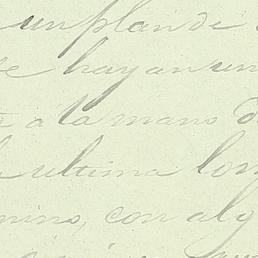 un plan de
hayan un
a la mano d
ultima lon
con alg